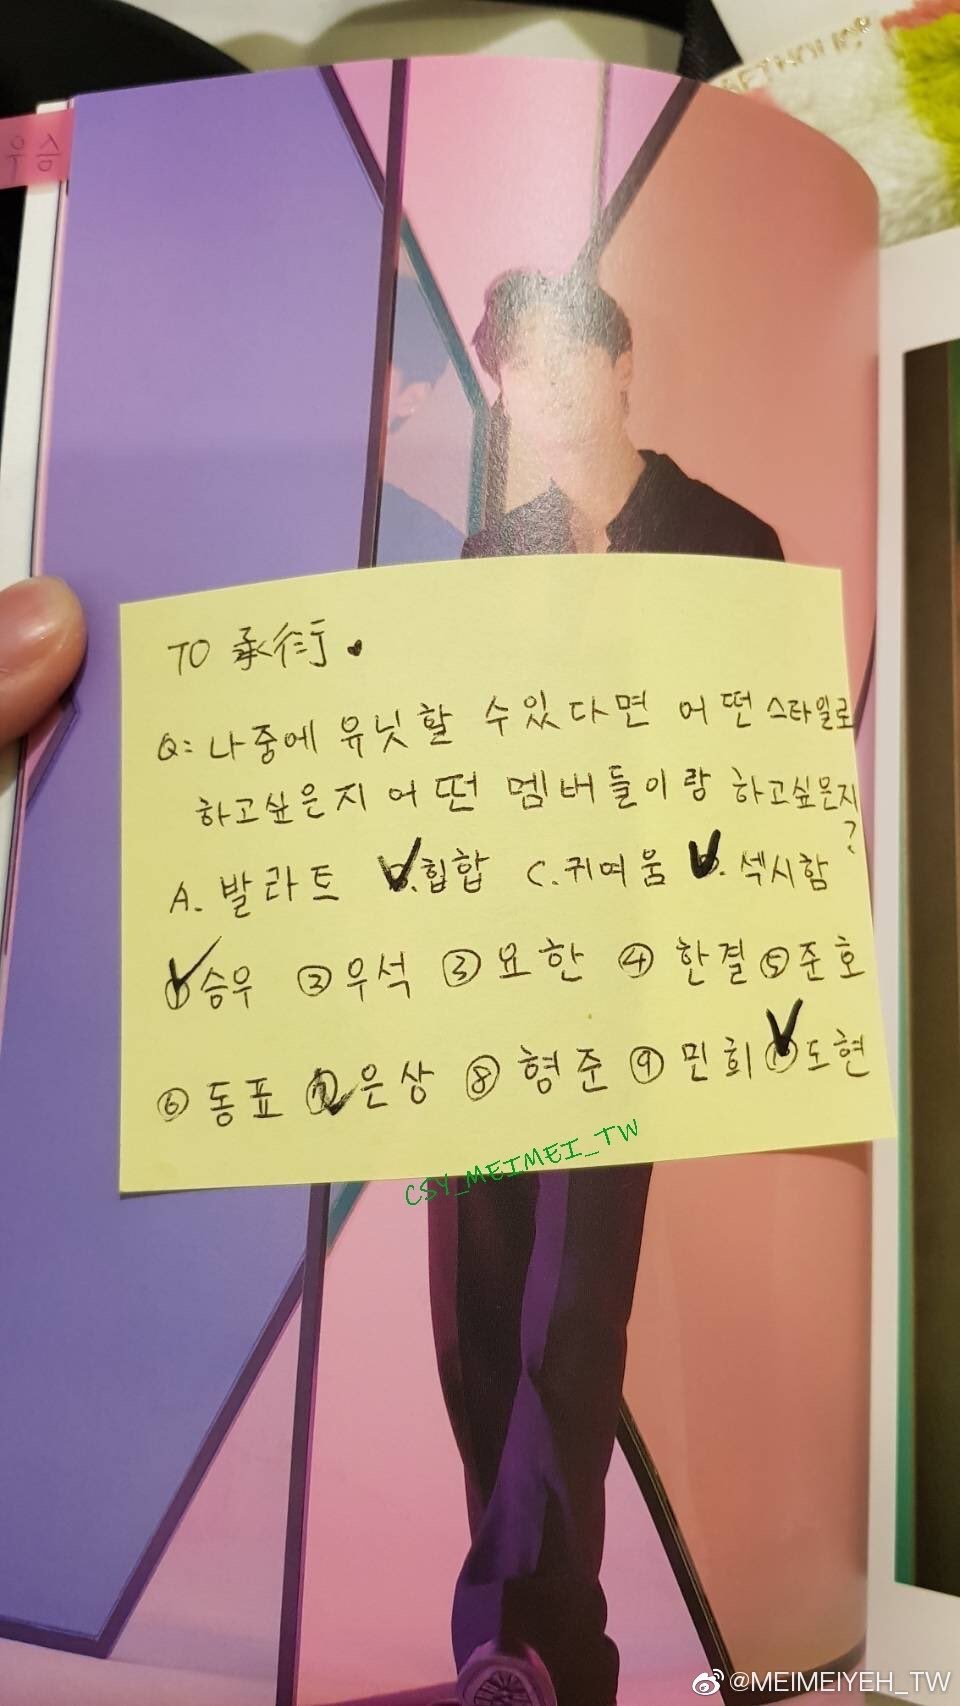 우승
TO 承衍.
Q: 나중에 유닛할 수있다면 어떤 스타일로
하고싶은지 어떤 멤버들이랑 하고싶은지
?
A. 발라트 B.힙합 C.귀여움 D.섹시함
① 승우 ② 우석 ③ 요한 ④ 한결 ⑤ 준호
⑥ 동표 ⑦ 은상 ⑧ 형준 ⑨ 민희 ⑩ 도현
CSY_MEIMEI_TW
@MEIMEIYEH_TW